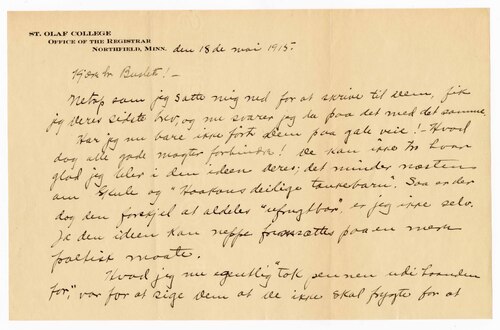 ST. OLAF COLLEGE
OFFICE OF THE REGISTRAR
NORTHFIELD, MINN.
den 18 de mai 1915.
Kjære hr Buslett! —
Netop som jeg satte mig ned for at skrive til Dem, fik
jeg deres sidste brev, og nu svarer jeg da paa det med det samme.
Har jeg nu bare ikke ført Dem paa gale veie! — Hvad
dog alle gode magter forhindre! De kan ikke tro hvor
glad jeg blev i den ideen deres; det minder næsten
om Skule og "Haakons deilige tankebarn". Saa er der
dog den forskjel at aldeles "ufrugtbar" er jeg ikke selv.
Ja den ideen kan neppe fremsættes paa en mere
poetisk maate.
Hvad jeg nu egentlig "tok pennen udi haanden
for," var for at sige Dem at De ikke skal frygte for at